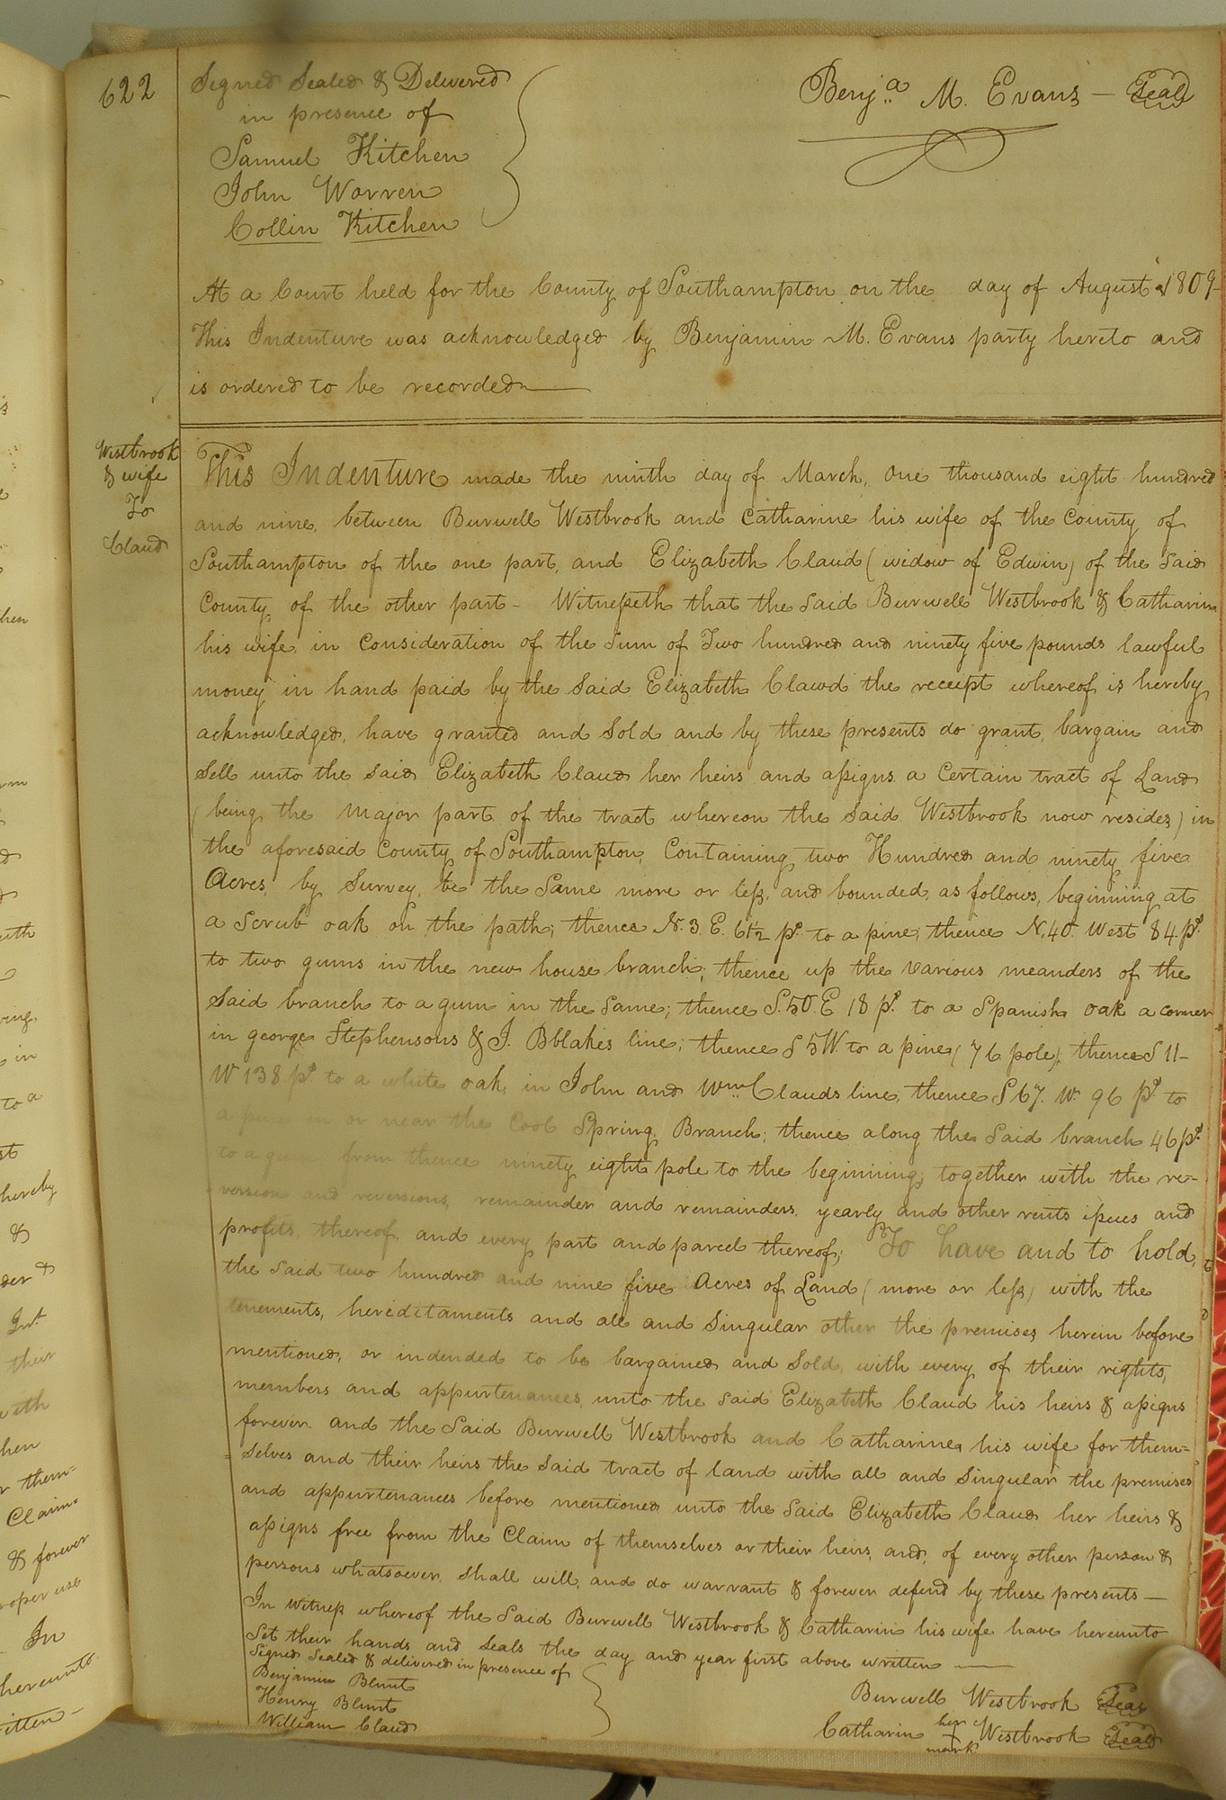 622
Signed Sealed & Delivered
in presence of
Samuel Kitchen
John Warren
Collin Kitchen
Benja M. Evans — Seal
At a Court held for the County of Southampton on the day of August 1809
This Indenture was acknowledged by Benjamin M. Evans party hereto and
is ordered to be recorded
Westbrook
& wife
To
Claud
This Indenture made the ninth day of March, one thousand eight hundred
and nine, between Burwell Westbrook and Catharine his wife of the County of
Southampton of the one part, and Elizabeth Claud (widow of Edwin) of the said
County of the other part - Witnesseth that the said Burwell Westbrook & Catharin
his wife, in Consideration of the Sum of Two hundred and ninety five pounds lawful
money in hand paid by the said Elizabeth Clawd the receipt whereof is hereby
acknowledged, have granted and Sold and by these presents do grant, bargain and
Sell unto the said Elizabeth Claud her heirs and assigns a Certain tract of Land
(being the Major part of the tract whereon the said Westbrook now resides) in
the aforesaid County of Southampton, Containing two Hundred and ninety five
Acres by Survey, be the Same more or less, and bounded, as follows, beginning at
a Scrub oak on the path; thence N. 3. E. 61½ ps. to a pine; thence N. 40. West 84 ps.
to two gums in the new house branch; thence up the various meanders of the
Said branch to a gum in the Same; thence S. 50. E 18 ps. to a Spanish oak a corner
in george Stephensons & J. Bblakes line; thence S 5 W. to a pine (76 pole), thence S 11-
W 138 ps to a white oak, in John and Wm. Clauds line, thence S 67. W. 96 ps to
a in or near the Cool Spring Branch; thence along the Said branch 46 ps.
to a gum from thence ninety eight pole to the beginning, together with the re-
version and reversions, remainder and remainders, yearly and other rents issues and
profits, thereof, and every part and parcel thereof; To have and to hold,
the said two hundred and nine five Acres of Land (more or less) with the
tenements, hereditaments and all and Singular other the premises herein before
mentioned, or indended to be bargained and Sold, with every of their rights,
members and appurtenances, unto the said Elizabeth Claud his heirs & assigns
forever and the Said Burwell Westbrook and Catharine his wife for them=
=Selves and their heirs the Said tract of land with all and Singular the premises
and appurtenances before mentioned unto the Said Elizabeth Claud her heirs &
assigns free from the Claim of themselves or their heirs, and, of every other person &
persons whatsoever, shall will, and do warrant & forever defend by these presents —
In Witness whereof the Said Burwell Westbrook & Catharin his wife have hereunto
Set their hands and Seals the day and year first above written —
Signed Sealed & delivered in presence of
Benjamin Blunt
Henry Blunt
William Claud
Burwell Westbrook Seal
Catharin her + mark Westbrook Seal